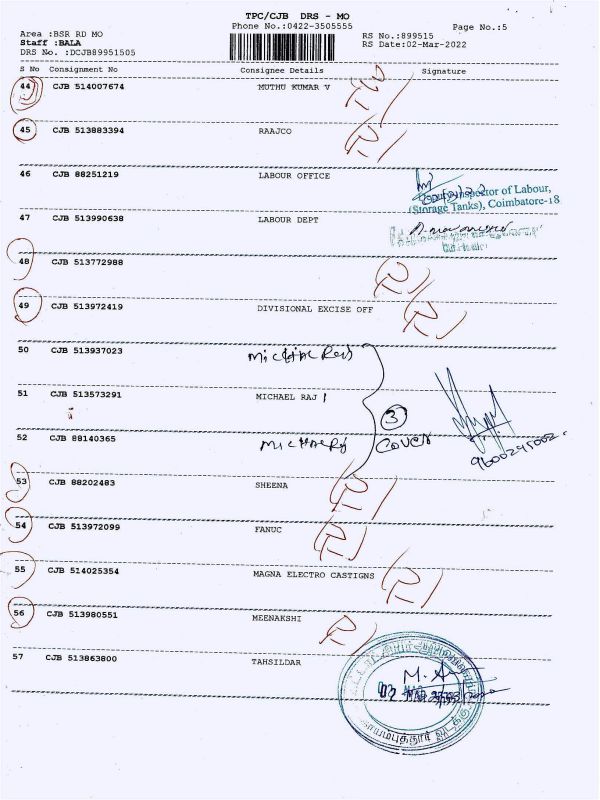 TPC/CJB DRS - MO
Phone No.:0422-3505555 Page No.:5
Area :BSR RD MO RS No.:899515
Staff :BALA RS Date:02-Mar-2022
DRS No. :DCJB89951505
S No Consignment No Consignee Details Signature
44 CJB 514007674 MUTHU KUMAR V
45 CJB 513883394 RAAJCO
46 CJB 88251219 LABOUR OFFICE
Inspector of Labour,
(Storage Tanks), Coimbatore-18
47 CJB 513990638 LABOUR DEPT
48 CJB 513772988
49 CJB 513972419 DIVISIONAL EXCISE OFF
50 CJB 513937023
51 CJB 513573291 MICHAEL RAJ
3
52 CJB 88140365 cover
9600245002
53 CJB 88202483 SHEENA
54 CJB 513972099 FANUC
55 CJB 514025354 MAGNA ELECTRO CASTIGNS
56 CJB 513980551 MEENAKSHI
57 CJB 513863800 TAHSILDAR